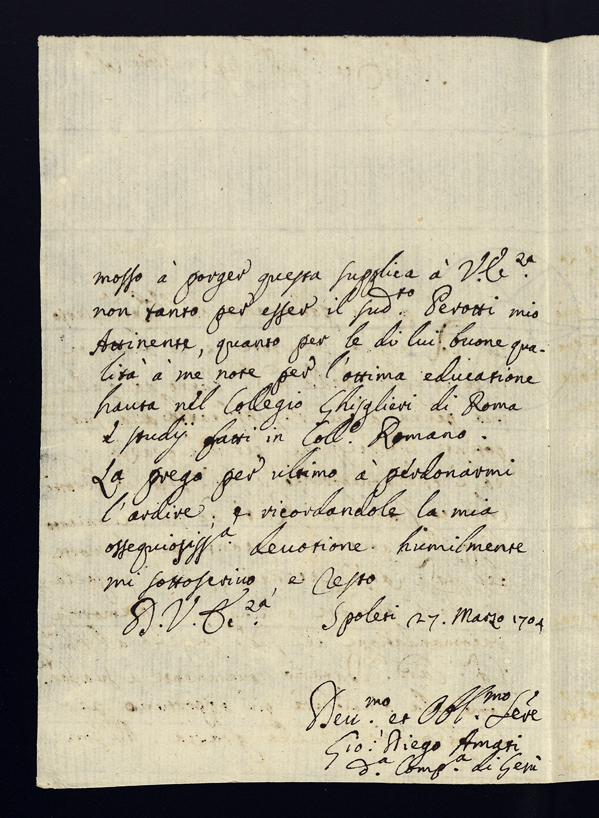 mosso à porger questa supplica à V. Ecc.za
non tanto per esser il sud.to Perotti mio
Attinente, quanto per le di lui buone qua-
lità à me note per l'ottima educatione
hauta nel Collegio Ghislieri di Roma
è studij fatti in Coll.o Romano.
La prego per ultimo à perdonarmi
l'ardire, e ricordandole la mia
ossequiosiss.a deuotione humilmente
mi sottoscriuo, e resto
D. V. Ecc.za
Spoleti 27. Marzo 1704
Deu.mo et Obl.mo Seru.e
Gio: Diego Amati
d.a Comp.a di Gesù